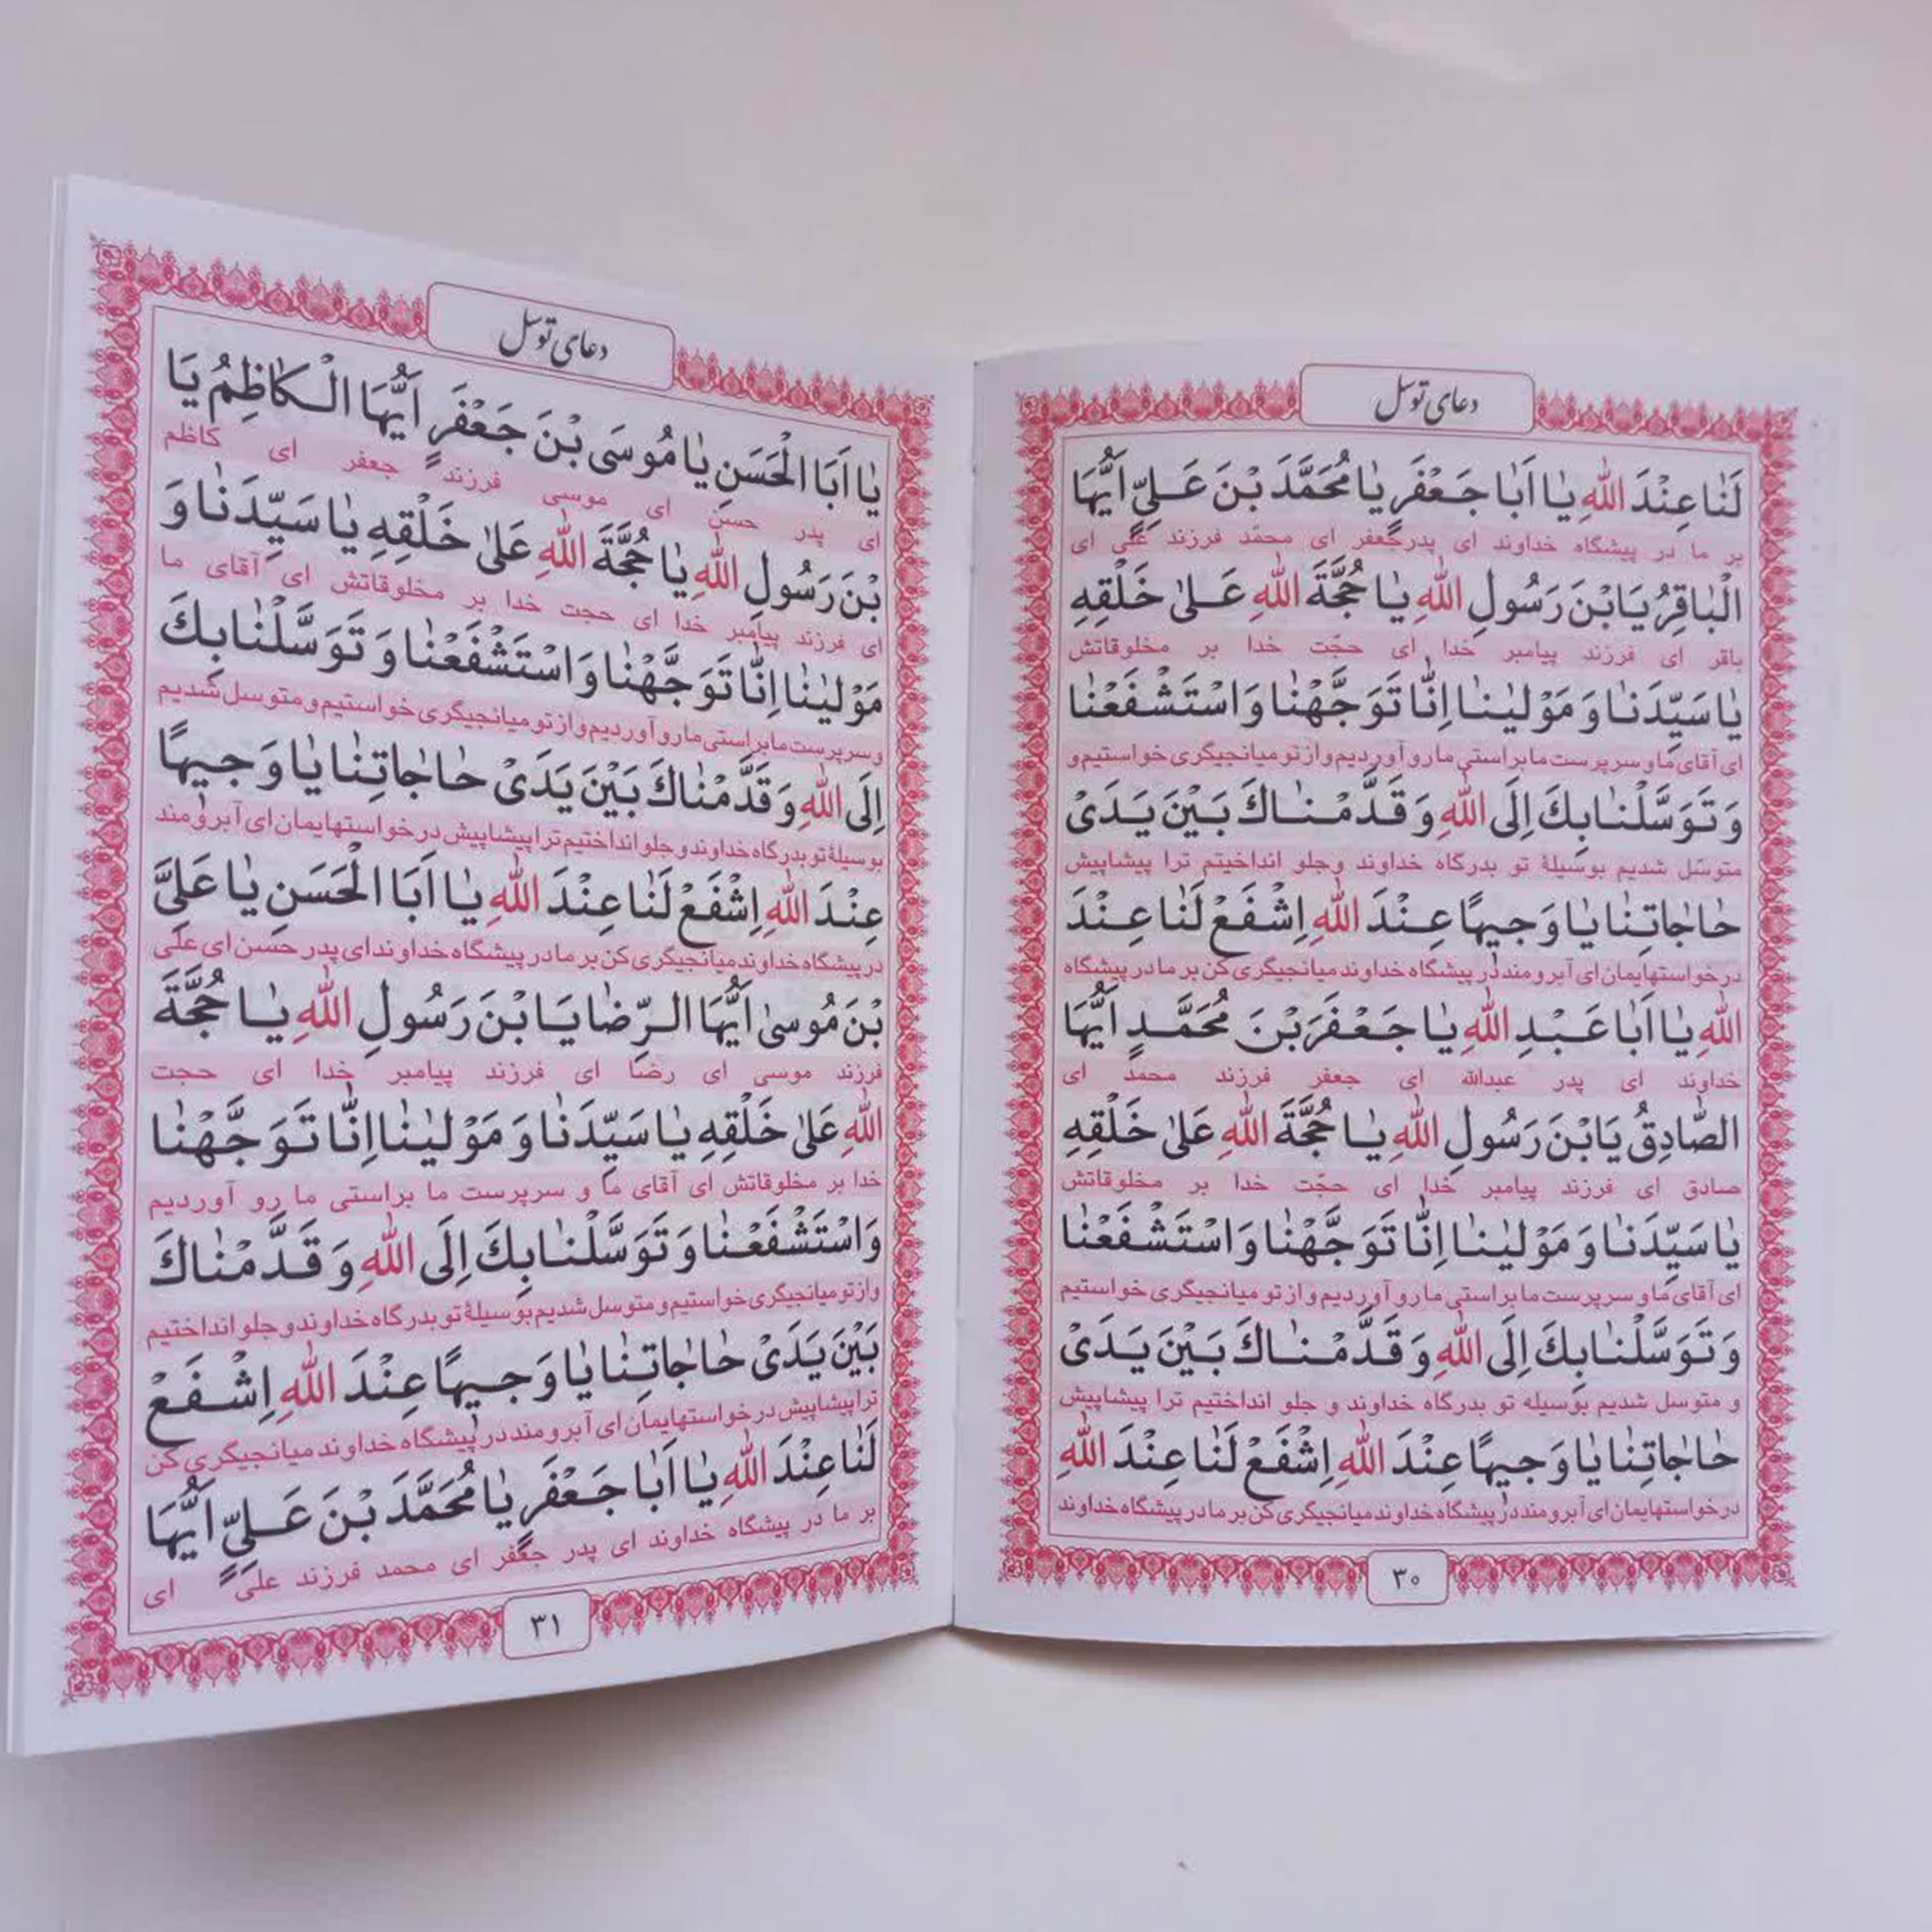 دعای توسل
لَنٰا عِنْدَ اللهِ يٰا اَبٰا جَعْفَرٍ يٰا مُحَمَّدَ بْنَ عَلِيٍّ اَيُّهَا
بر ما در پیشگاه خداوند ای پدر جعفر ای محمّد فرزند علی ای
الْبٰاقِرُ يَا بْنَ رَسُولِ اللهِ يٰا حُجَّةَ اللهِ عَلىٰ خَلْقِهِ
باقر ای فرزند پیامبر خدا ای حجّت خدا بر مخلوقاتش
يٰا سَيِّدَنٰا وَ مَوْلیٰنٰا اِنّٰا تَوَجَّهْنٰا وَ اسْتَشْفَعْنٰا
ای آقای ما و سرپرست ما براستی ما رو آوردیم و از تو میانجیگری خواستیم و
وَ تَوَسَّلْنٰا بِكَ اِلَى اللهِ وَ قَدَّمْنٰاكَ بَيْنَ يَدَىْ
متوسّل شدیم بوسیلهٔ تو بدرگاه خداوند و جلو انداخیتم ترا پیشاپیش
حٰاجٰاتِنٰا يٰا وَجيهًا عِنْدَ اللهِ اِشْفَعْ لَنٰا عِنْدَ
درخواستهایمان ای آبرومند در پیشگاه خداوند میانجیگری کن بر ما در پیشگاه
اللهِ يٰا اَبٰا عَبْدِ اللهِ يٰا جَعْفَرَ بْنَ مُحَمَّدٍ اَيُّهَا
خداوند ای پدر عبدالله ای جعفر فرزند محمد ای
الصّٰادِقُ يَا بْنَ رَسُولِ اللهِ يٰا حُجَّةَ اللهِ عَلىٰ خَلْقِهِ
صادق ای فرزند پیامبر خدا ای حجّت خدا بر مخلوقاتش
يٰا سَيِّدَنٰا وَ مَوْلیٰنٰا اِنّٰا تَوَجَّهْنٰا وَ اسْتَشْفَعْنٰا
ای آقای ما و سرپرست ما براستی ما رو آوردیم و از تو میانجیگری خواستیم
وَ تَوَسَّلْنٰا بِكَ اِلَى اللهِ وَ قَدَّمْنٰاكَ بَيْنَ يَدَىْ
و متوسل شدیم بوسیله تو بدرگاه خداوند و جلو انداختیم ترا پیشاپیش
حٰاجٰاتِنٰا يٰا وَجيهًا عِنْدَ اللهِ اِشْفَعْ لَنٰا عِنْدَ اللهِ
درخواستهایمان ای آبرومند در پیشگاه خداوند میانجیگری کن بر ما در پیشگاه خداوند
۳۰
دعای توسل
يٰا اَبَا الْحَسَنِ يٰا مُوسَى بْنَ جَعْفَرٍ اَيُّهَا الْكٰاظِمُ يَا
ای پدر حسن ای موسی فرزند جعفر ای کاظم
بْنَ رَسُولِ اللهِ يٰا حُجَّةَ اللهِ عَلىٰ خَلْقِهِ يٰا سَيِّدَنٰا وَ
ای فرزند پیامبر خدا ای حجت خدا بر مخلوقاتش ای آقای ما
مَوْلیٰنٰا اِنّٰا تَوَجَّهْنٰا وَ اسْتَشْفَعْنٰا وَ تَوَسَّلْنٰا بِكَ
و سرپرست ما براستی ما رو آوردیم و از تو میانجیگری خواستیم و متوسل شدیم
اِلَى اللهِ وَ قَدَّمْنٰاكَ بَيْنَ يَدَىْ حٰاجٰاتِنٰا يٰا وَجيهًا
بوسیلهٔ تو بدرگاه خداوند و جلو انداختیم ترا پیشاپیش درخواستهایمان ای آبرومند
عِنْدَ اللهِ اِشْفَعْ لَنٰا عِنْدَ اللهِ يٰا اَبَا الْحَسَنِ يٰا عَلِيَّ
در پیشگاه خداوند میانجیگری کن بر ما در پیشگاه خداوند ای پدر حسن ای علی
بْنَ مُوسىٰ اَيُّهَا الرِّضٰا يَا بْنَ رَسُولِ اللهِ يٰا حُجَّةَ
فرزند موسی ای رضا ای فرزند پیامبر خدا ای حجت
اللهِ عَلىٰ خَلْقِهِ يٰا سَيِّدَنٰا وَ مَوْلیٰنٰا اِنّٰا تَوَجَّهْنٰا
خدا بر مخلوقاتش ای آقای ما و سرپرست ما براستی ما رو آوردیم
وَ اسْتَشْفَعْنٰا وَ تَوَسَّلْنٰا بِكَ اِلَى اللهِ وَ قَدَّمْنٰاكَ
و از تو میانجیگری خواستیم و متوسل شدیم بوسیلهٔ تو بدرگاه خداوند و جلو انداختیم
بَيْنَ يَدَىْ حٰاجٰاتِنٰا يٰا وَجيهًا عِنْدَ اللهِ اِشْفَعْ
ترا پیشاپیش درخواستهایمان ای آبرومند در پیشگاه خداوند میانجیگری کن
لَنٰا عِنْدَ اللهِ يٰا اَبٰا جَعْفَرٍ يٰا مُحَمَّدَ بْنَ عَلِيٍّ اَيُّهَا
بر ما در پیشگاه خداوند ای پدر جعفر ای محمد فرزند علی ای
۳۱